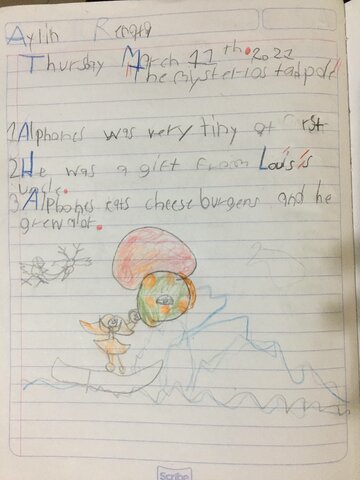 Aylin Renata
Thursday March 11th 2021
The mysterios tadpole
1 Alphones was very tiny at first
2 He was a gift from Louis's
uncle.
3 Alphones eats cheese burgens and he
grew alot.
Scribe